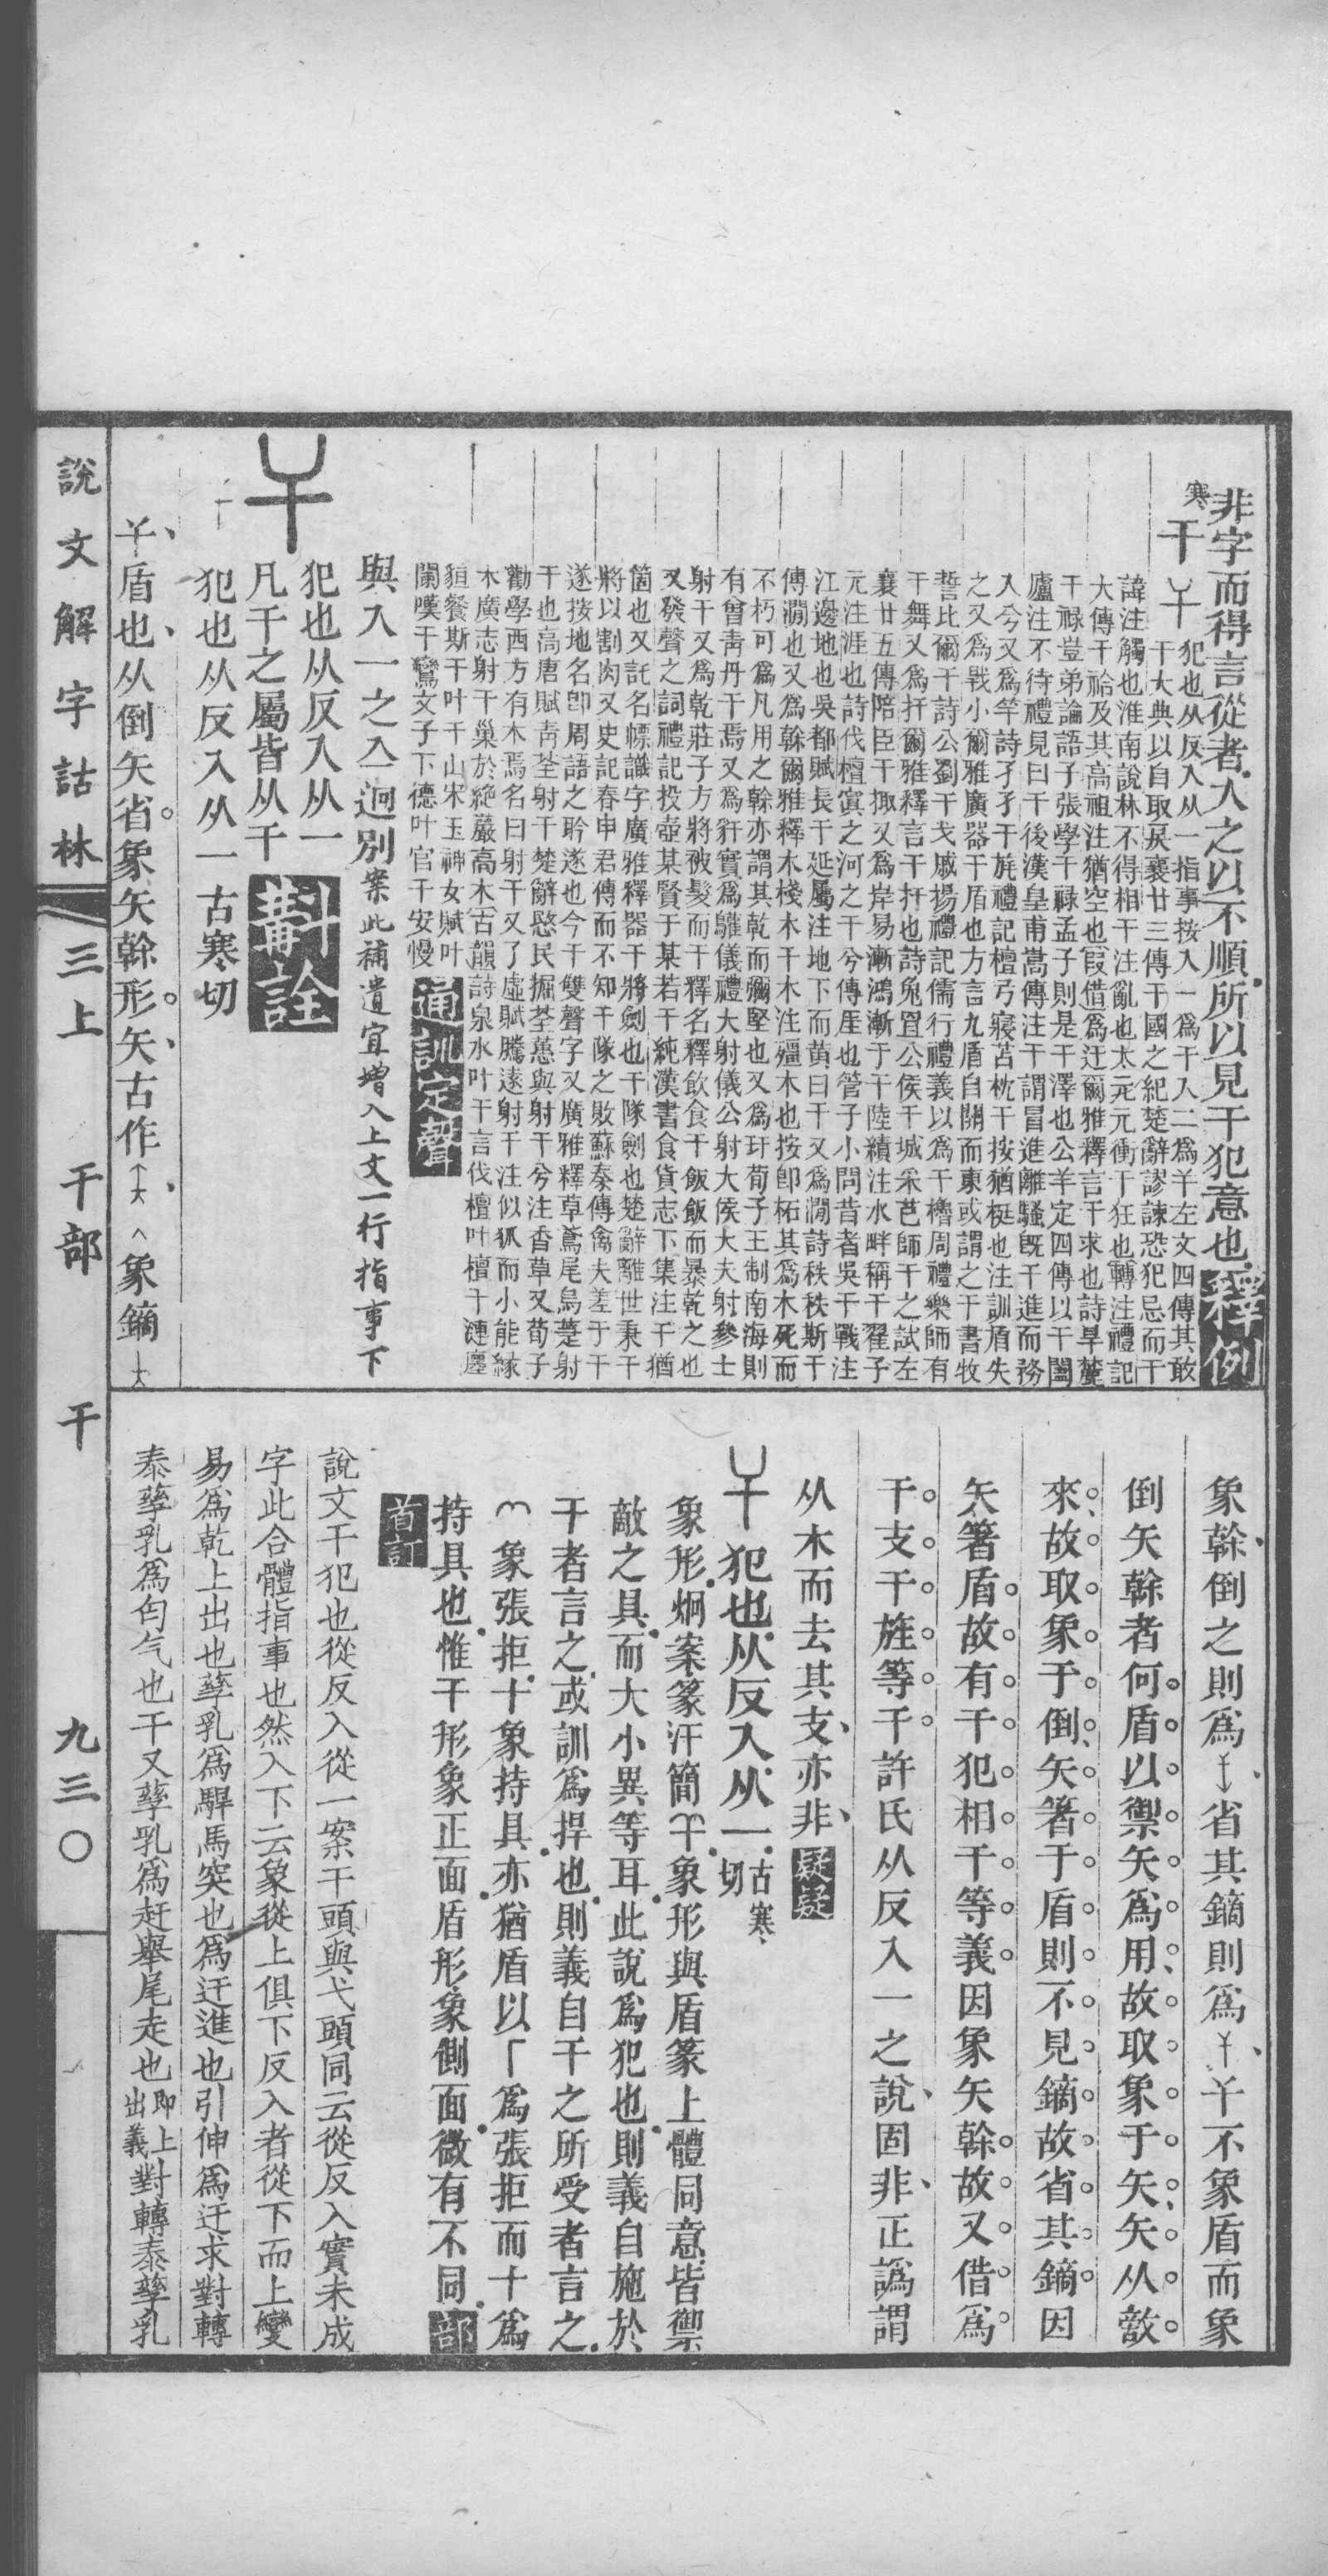 非字而得言從者入之以不順所以見干犯意也釋例
寒
干
犯也从反入从一指事按入一爲干入二爲𢆉左文四傳其敢
干大典以自取戾襄廿三傳干國之紀楚辭謬諫恐犯忌而干
諱注觸也淮南說林不得相干注亂也太元元衝干狂也轉注禮記
大傳干祫及其高祖注猶空也叚借爲迂爾雅釋言干求也詩旱麓
干祿豈弟論語子張學干祿孟子則是干澤也公羊定四傳以干闔
廬注不待禮見曰干後漢皇甫嵩傳注干謂冒進離騷旣干進而務
入今又爲竿詩孑孑干旄禮記檀弓寢苫枕干按猶梃也注訓盾失
之又爲戰小爾雅廣器干盾也方言九盾自關而東或謂之干書牧
誓比爾干詩公劉干戈戚揚禮記儒行禮義以爲干櫓周禮樂師有
干舞又爲扞爾雅釋言干扞也詩兔罝公侯干城采芑師干之試左
襄廿五傳陪臣干掫又爲岸易漸鴻漸于干陸績注水畔稱干翟子
元注涯也詩伐檀寘之河之干兮傳厓也管子小問昔者吳干戰注
江邊地也吳都賦長干延屬注地下而黄曰干又爲澗詩秩秩斯干
傳澗也又爲榦爾雅釋木棧木干木注殭木也按卽柘其爲木死而
不朽可爲凡用之榦亦謂其乾而彌堅也又爲玕荀子王制南海則
有曾靑丹干焉又爲豻實爲貛儀禮大射儀公射大侯大夫射參士
射干又爲乾莊子方將被髮而干釋名釋飮食干飯飯而暴乾之也
又發聲之詞禮記投壺某賢于某若干純漢書食貨志下集注干猶
箇也又託名幖識字廣雅釋器干將劍也干隊劍也楚辭離世秉干
將以割肉又史記春申君傳而不知干隊之敗蘇秦傳禽夫差于干
遂按地名卽周語之聆遂也今干雙聲字又廣雅釋草鳶尾烏萐射
干也高唐賦靑荃射干楚辭愍民掘荃蕙與射干兮注香草又荀子
勸學西方有木焉名曰射干又子虛賦騰遠射干注似狐而小能緣
木廣志射干巢於絶巖高木古韻詩泉水叶干言伐檀叶檀干漣廛
貆餐斯干叶干山宋玉神女賦叶
闌嘆干鸞文子下德叶官干安慢通訓定聲
與入一之入迥別案此補遺宜增入上文一行指事下
犯也从反入从一
凡干之屬皆从干斠詮
犯也从反入从一古寒切
盾也从倒矢省象矢榦形矢古作
象鏑
象榦倒之則爲
省其鏑則爲
不象盾而象
倒矢榦者何盾以禦矢爲用故取象于矢矢从敵
來故取象于倒矢箸于盾則不見鏑故省其鏑因
矢箸盾故有干犯相干等義因象矢榦故又借爲
干支干旌等干許氏从反入一之說固非正譌謂
从木而去其支亦非疑疑
犯也从反入从一古寒切
象形炯案篆汗簡
象形與盾篆上體同意皆禦
敵之具而大小異等耳此說爲犯也則義自施於
干者言之或訓爲捍也則義自干之所受者言之
象張拒十象持具亦猶盾以𠂆爲張拒而十爲
持具也惟干形象正面盾形象側面微有不同部
首訂
說文干犯也從反入從一案干頭與弋頭同云從反入實未成
字此合體指事也然入下云象從上俱下反入者從下而上變
易爲乾上出也孳乳爲駻馬突也爲迀進也引伸爲迀求對轉
泰孳乳爲匄气也干又孳乳爲赶舉尾走也卽上出義對轉泰孳乳
說文解字詁林
三上
干部
干
九三〇